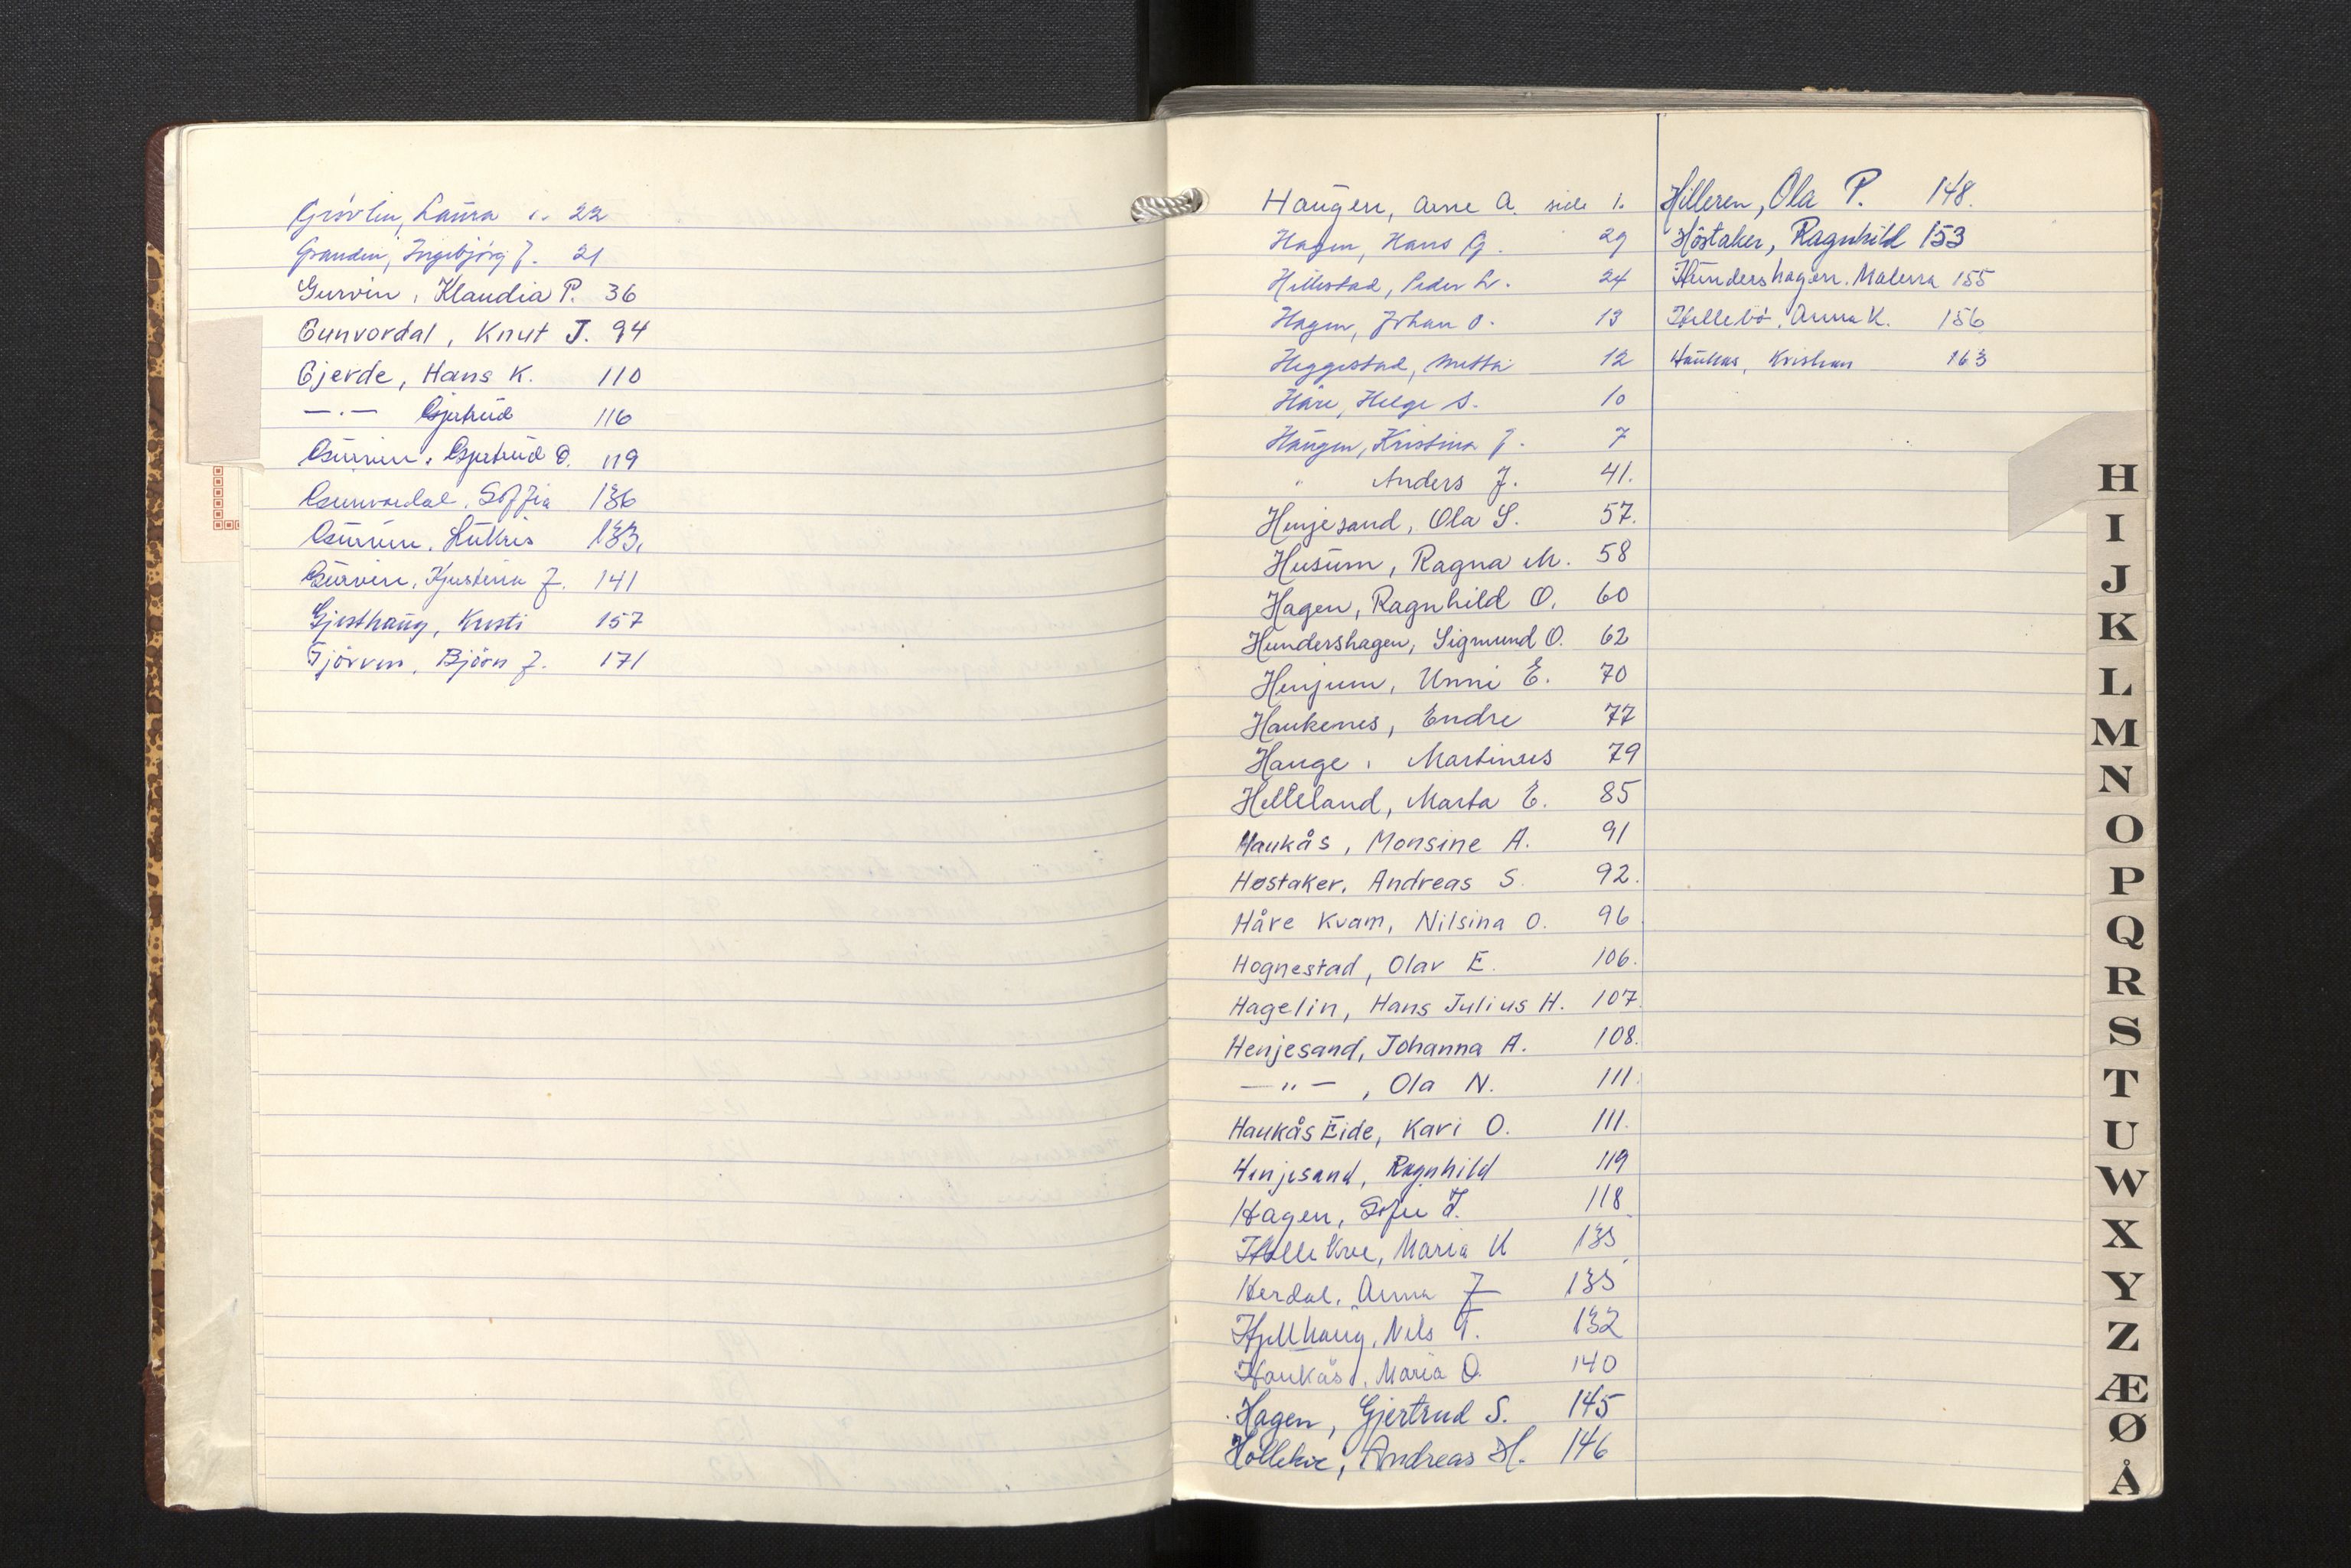 Grövlin, Laura s. 22
Grandin, Ingebjörg J. 21
Gurvin, Klaudia P. 36
Gunvordal, Knut J. 94
Gjerde, Hans K. 110
— · — Gjertrud 116
Gurvin, Gjertrud O. 119
Gunvordal, Soffia 136
Gurvin, 133.
Gurvin, Kjestina J. 141
Gjesthaug, Kristi 157
Tjörven, Björn J. 171
Haugen, Arne A. side 1.
Hagen, Hans G. 29
Hillestad, Peder L. 24
Hagen, Johan O. 13
Heggestad, 12
Håre, Helge S. 10
Haugen, Kristina J. 7
" Anders J. 41.
Henjesand, Ola S. 57.
Husum, Ragna M. 58
Hagen, Ragnhild O. 60
Hundershagen, Sigmund O. 62
Henjum, Unni E. 70
Haukenes, Endre 77
Hauge, Martinus 79
Helleland, Marta E. 85
Haukås, Monsine A. 91
Høstaker, Andreas S. 92.
Håre Kvam, Nilsina O. 96
Hognestad, Olav E. 106.
Hagelin, Hans Julius H. 107.
Henjesand, Johanna A. 108.
— " — , Ola N. 111.
Haukås Eide, Kari O. 111.
Henjesand, Ragnhild 119
Hagen, Sofie J. 118
Maria K 135
Herdal, Anna J 135
Hjellhaug, Nils T. 132
Haukås, Maria O. 140
Hagen, Gjertrud S. 145
Hollekve, Andreas H. 146
Hilleren, Ola P. 148.
Höstaker, Ragnhild 153
Hundershagen, Malena 155
Hellebö, Anna K. 156
Haukås, Kristian 163
H
I
J
K
L
M
N
O
P
Q
R
S
T
U
W
X
Y
Z
Æ
Ø
Å